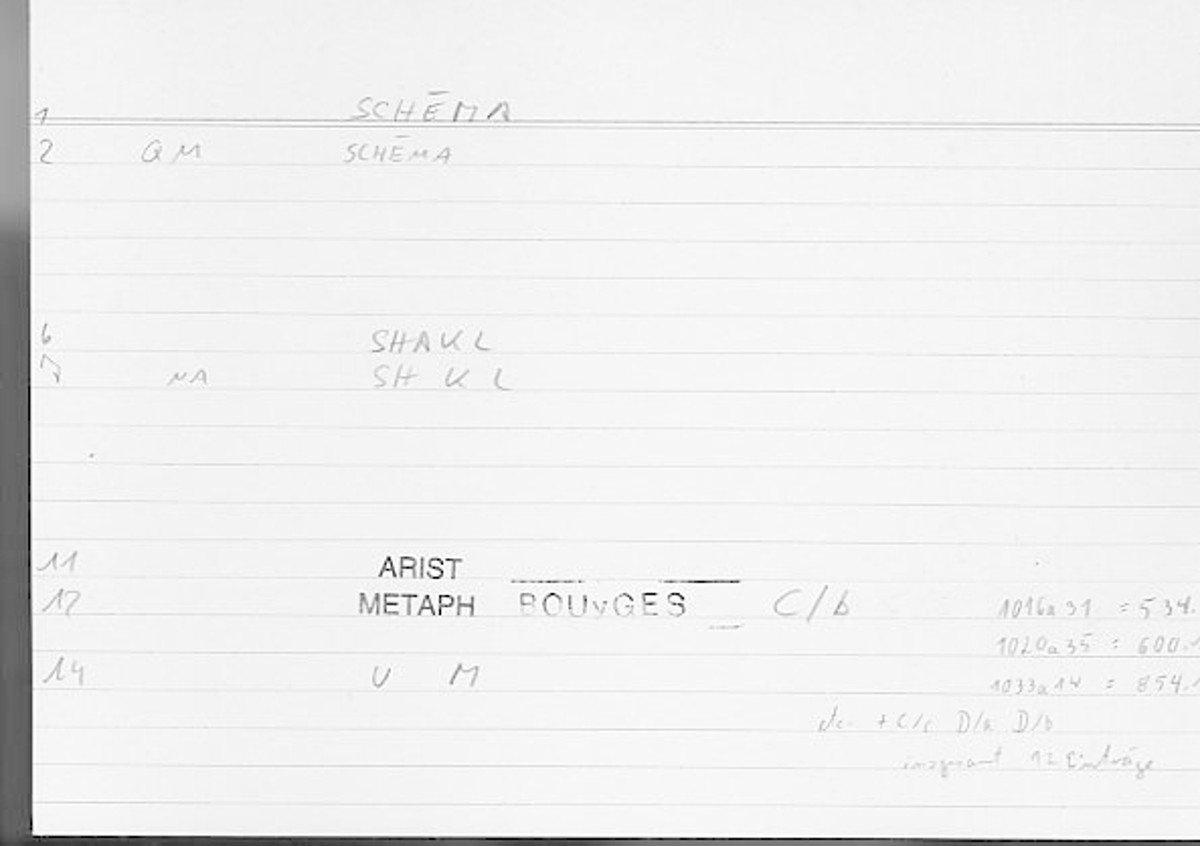 1 SCHĒMA
2 QM SCHĒMA
6 SHAKL
7 NA SH K L
11 ARIST
12 METAPH BOUYGES C/b 1016a31 = 534.
1020a35 = 600.1
14 U M 1033a14 = 854.1
etc. + C/c D/a D/b
insgesamt 12 Einträge